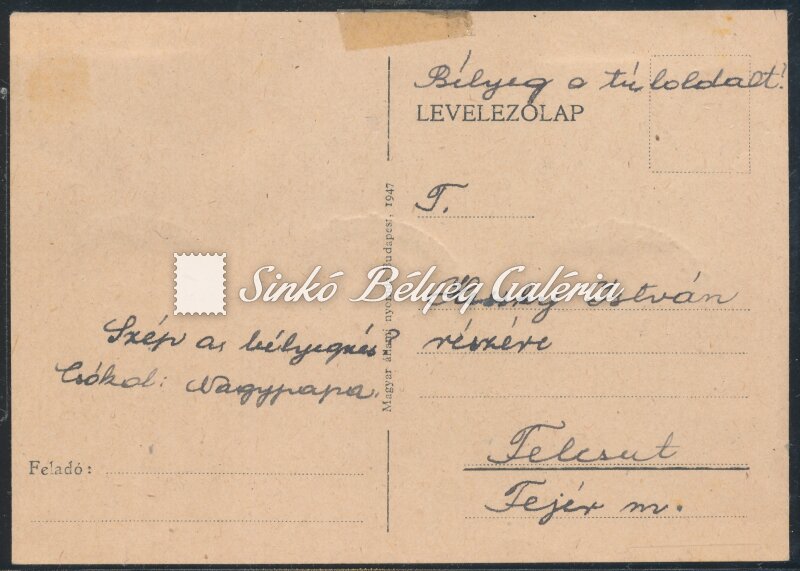 Bélyeg a túloldalt!
LEVELEZŐLAP
T.
Sinkó Bélyeg Galéria
István
részére
Szép az bélyegzés?
Csókol: Nagypapa.
Magyar állami Budapest, 1947
Felcsut
Fejér m.
Feladó: